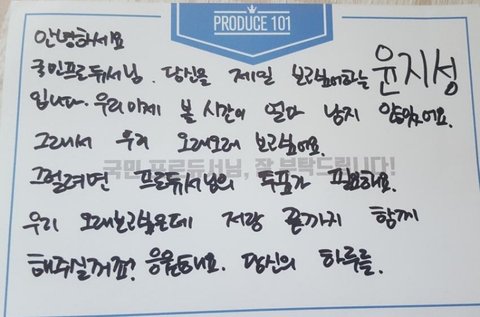 PRODUCE 101
안녕하세요
국민프로듀서님. 당신을 제일 보고싶어하는 윤지성
입니다. 우리 이제 볼 시간이 얼마 남지 않았어요.
그래서 우리 오래오래 보고싶어요.
국민 프로듀서님, 잘 부탁드립니다!
그럴려면 프로듀서님의 투표가 필요해요.
우리 오래보고싶은데 저랑 끝까지 함께
해주실꺼죠? 응원해요. 당신의 하루를.